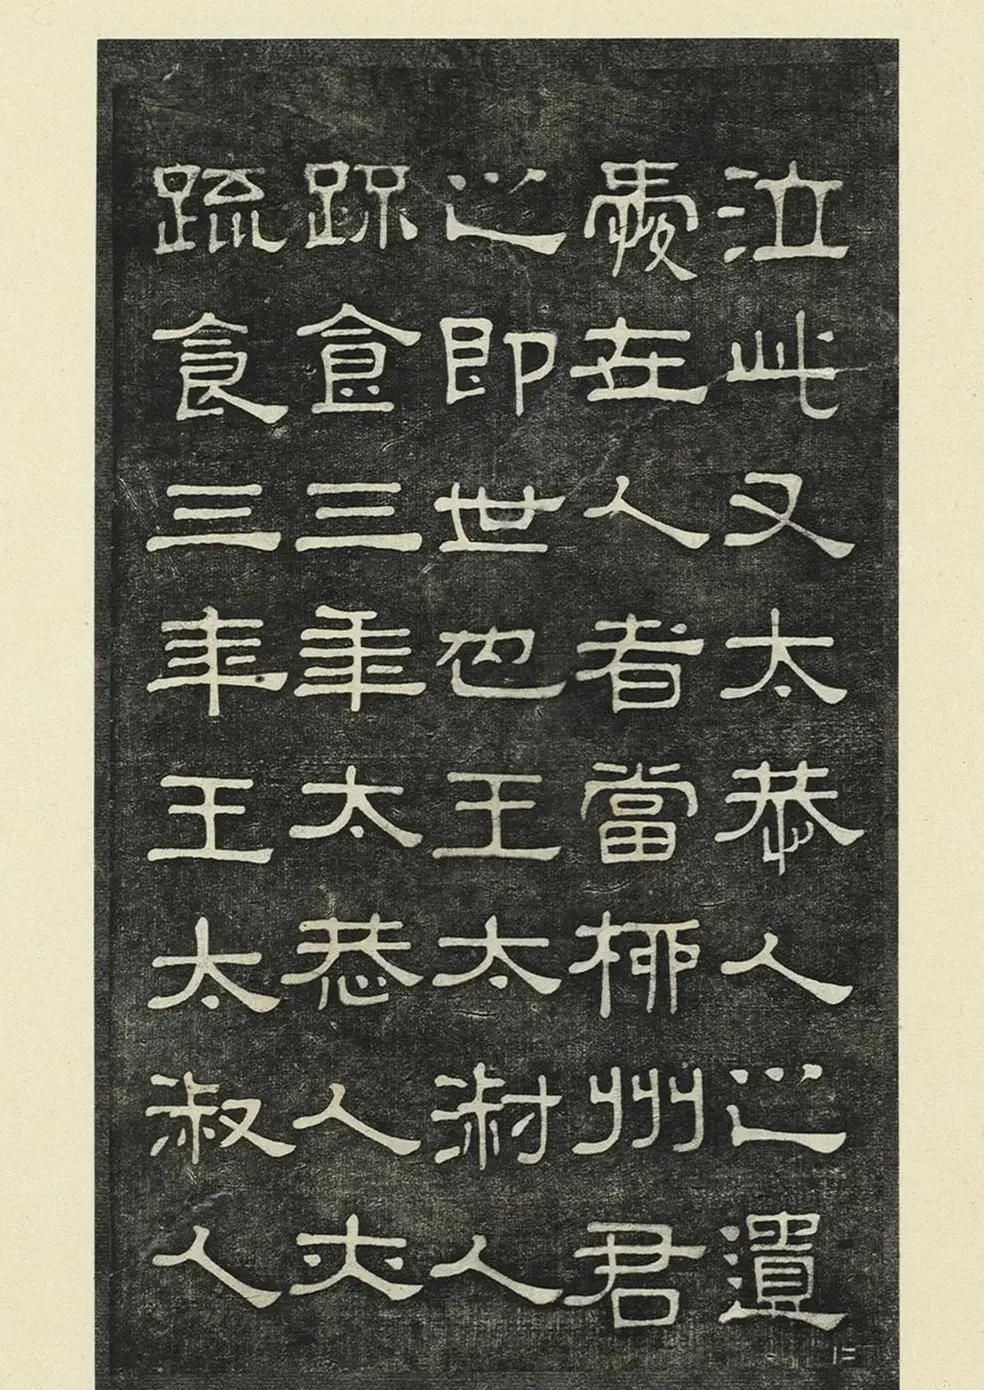 泣此又太恭人之遺
愛在人者當柳州君
之即世也王太淑人
疏食三年太恭人亦
疏食三年王太淑人